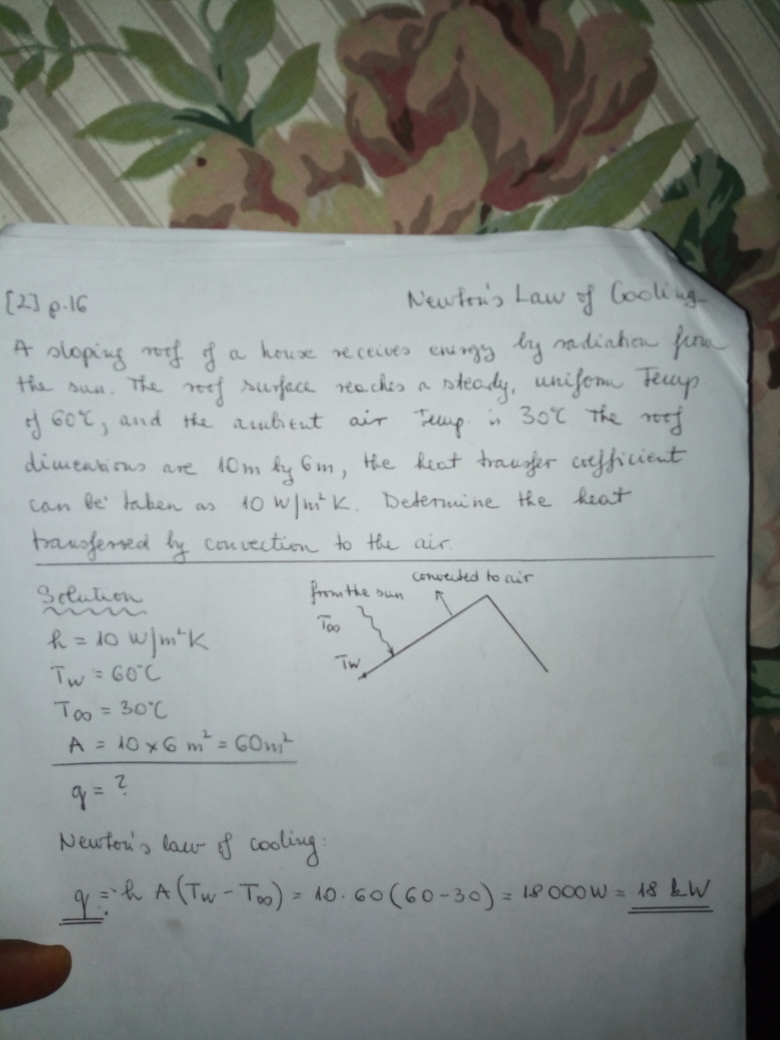 [2] p.16 Newton's Law of Cooling
A sloping roof of a house receives energy by radiation from
the sun. The roof surface reaches a steady, uniform Temp
of 60℃, and the ambient air Temp. is 30℃ The roof
dimentions are 10m by 6m, the heat transfer coefficient
can be taken as 10 W/m²K. Determine the heat
transferred by convection to the air.
Solution
from the sun
convected to air
T∞
Tw
h = 10 W/m²K
Tw = 60℃
T∞ = 30℃
A = 10 × 6 m² = 60m²
q = ?
Newton's law of cooling:
q = h A (Tw - T∞) = 10 · 60 (60 - 30) = 18 000W = 18 kW